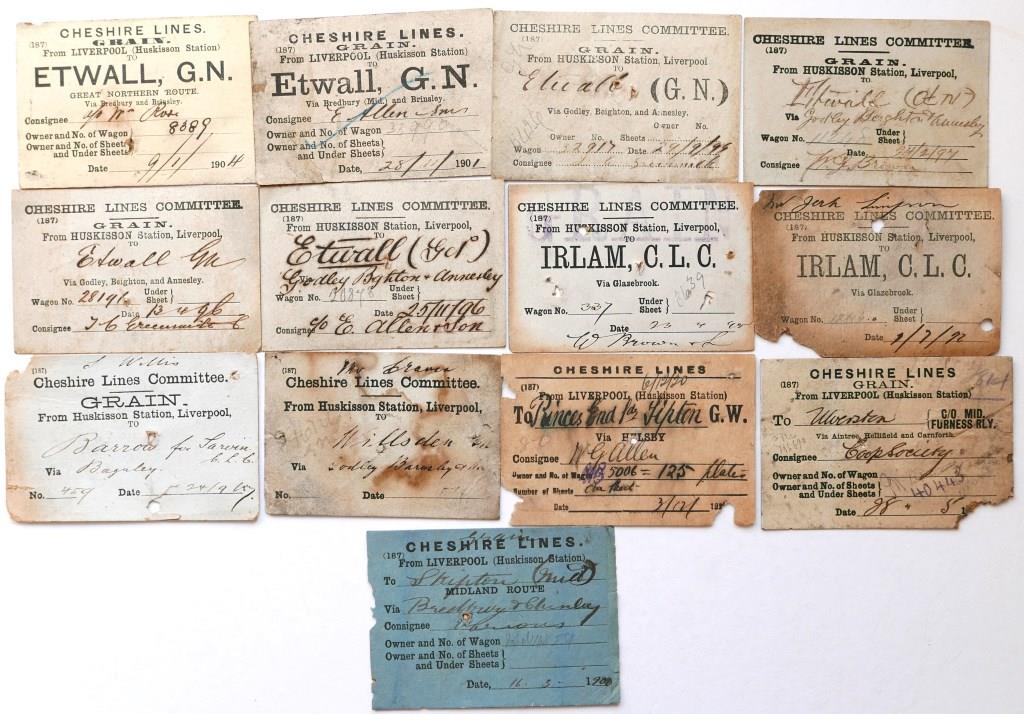 CHESHIRE LINES.
(187) GRAIN.
From LIVERPOOL (Huskisson Station)
TO
ETWALL, G.N.
GREAT NORTHERN ROUTE.
Via Bredbury and Brinsley.
Consignee Rose
Owner and No. of Wagon 8389
Owner and No. of Sheets }
and Under Sheets }
Date 9/1/ 1904
CHESHIRE LINES.
(187) GRAIN.
From LIVERPOOL (Huskisson Station)
TO
Etwall, G.N.
Via Bredbury (Mid.) and Brinsley.
Consignee E Allen & Sons
Owner and No. of Wagon
Owner and No. of Sheets }
and Under Sheets }
Date, 28/11/ 1901
CHESHIRE LINES COMMITTEE.
(187)
GRAIN.
From HUSKISSON Station, Liverpool
TO
Etwall (G. N.)
Via Godley, Beighton, and Annesley.
Owner No. Owner No.
Wagon 22917 Sheet
Consignee Date
CHESHIRE LINES COMMITTEE.
(187) GRAIN.
From HUSKISSON Station, Liverpool,
TO
Etwall (G N)
Via Godley Beighton & Annesley
Wagon No. Under }
Sheet }
Date 24/2/97
Consignee
CHESHIRE LINES COMMITTEE.
(187) GRAIN.
From HUSKISSON Station, Liverpool,
TO
Etwall GN
Via Godley, Beighton, and Annesley.
Wagon No. 28191 Under }
Sheet }
Date 13 4 96
Consignee
CHESHIRE LINES COMMITTEE.
(187)
From HUSKISSON Station, Liverpool,
TO
Etwall (GN)
Godley Bghton & Annesley
Wagon No. 20878 Under }
Sheet }
Date 25/11/96
Consignee c/o E. Allen & Son
CHESHIRE LINES COMMITTEE.
(187)
From HUSKISSON Station, Liverpool,
TO
IRLAM, C.L.C.
Via Glazebrook.
Wagon No. 337 Under }
Sheet }
Date 23
W Brown &
CHESHIRE LINES COMMITTEE.
From HUSKISSON Station, Liverpool,
TO
IRLAM, C.L.C.
Via Glazebrook.
Wagon No. Under }
Sheet }
Date 9/7/92
J Willis
Cheshire Lines Committee.
(187)
GRAIN.
From Huskisson Station, Liverpool,
TO
Barrow for Tarvin
C.L.C.
Via Baguley.
No. 459 Date 24/9
Craven
Cheshire Lines Committee.
(187)
From HUSKISSON Station, Liverpool,
TO
Willsden
Via Godley Barnsley
No. Date
CHESHIRE LINES
(187) 6/12/20
From LIVERPOOL (Huskisson Station)
To Princes End for Tipton G.W.
Via HELSBY
Consignee W G Allen
Owner and No. of Wagon 5006 = 125 plates
Number of Sheets One Sheet
Date 3/12/ 19
CHESHIRE LINES
(187) GRAIN.
From LIVERPOOL (Huskisson Station)
To Ulverston { C/O MID.
FURNESS RLY.
Via Aintree, Hellifield and Carnforth.
Consignee Coop Society
Owner and No. of Wagon 40443
Owner and No. of Sheets }
and Under Sheets }
Date 28 " 5 1
Grain
CHESHIRE LINES.
(187)
From LIVERPOOL (Huskisson Station)
To Skipton (Mid)
MIDLAND ROUTE
Via Bredbury & Chinley
Consignee
Owner and No. of Wagon
Owner and No. of Sheets }
and Under Sheets }
Date, 16. 3. 1900